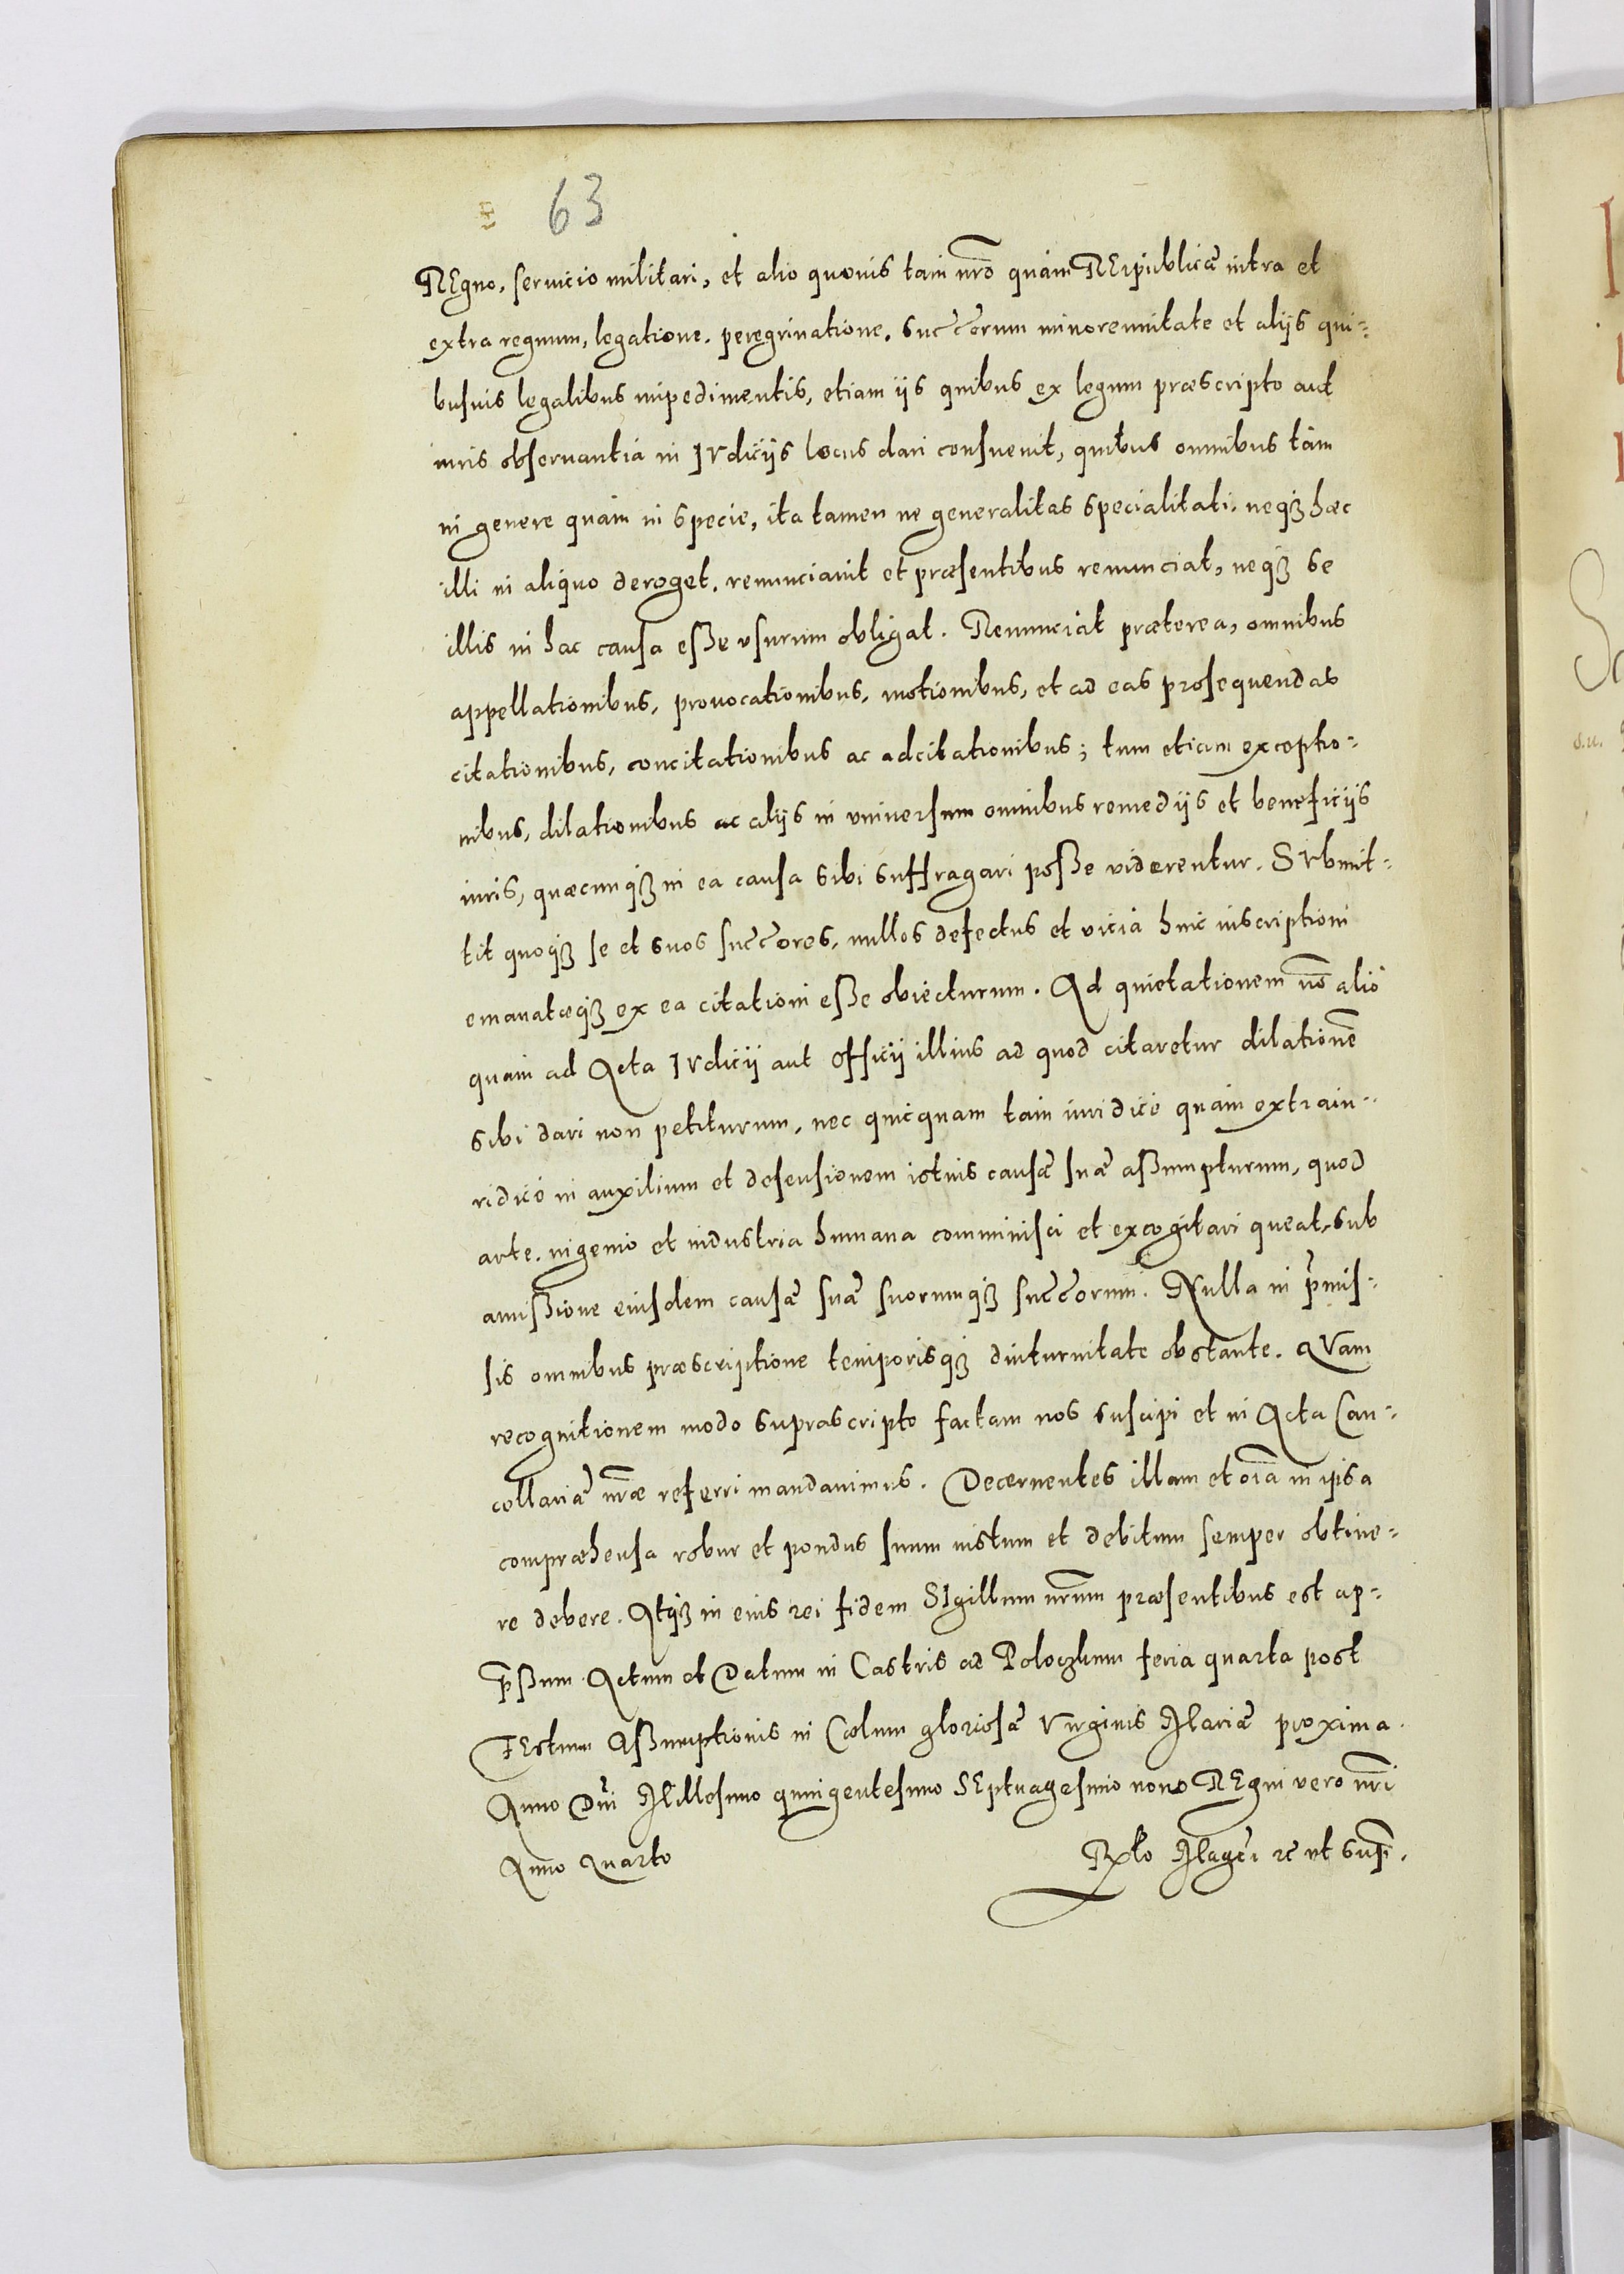 63
REgno, seruicio militari, et alio quouis tam nrõ quàm REipublicæ intra et
extra regnum, legatione, peregrinatione, succorum minorennitate et alijs qui-
busuis legalibus impedimentis, etiam ijs quibus ex legum præscripto aut
iuris obseruantia in IVdicijs locus dari consueuit, quibus omnibus tàm
in genere quàm in specie, ita tamen ne generalitas specialitati, neqȝ hæc
illi in aliquo deroget, renunciauit et præsentibus renunciat, neqȝ se
illis in hac causa eße vsurum obligat. Renunciat præterea, omnibus
appellationibus, prouocationibus, motionibus, et ad eas prosequendas
citationibus, concitationibus ac adcitationibus; tum etiam exceptio-
nibus, dilationibus ac alijs in vniuersum omnibus remedijs et beneficijs
iuris, quæcunqȝ in ea causa sibi suffragari poße viderentur. SVbmit-
tit quoqȝ se et suos succores, nullos defectus et vicia huic inscriptioni
emanatæqȝ ex ea citationi eße obiecturum. Ad quietationem nõ aliò
quàm ad Acta IVdicij aut Officij illius ad quod citaretur dilationẽ
sibi dari non petiturum, nec quicquam tàm iuridicè quàm extraiu-
ridicè in auxilium et defensionem istius causæ suæ aßumpturum, quod
arte, ingenio et industria humana comminisci et excogitari queat, sub
amißione eiusdem causæ suæ suorumqȝ succorum. Nulla in p̃mis-
sis omnibus præscriptione temporisqȝ diuturnitate obstante. QVam
recognitionem modo suprascripto factam nos suscipi et in Acta Can-
cellariæ nræ referri mandauimus. Decernentes illam et oĩa in ipsa
compræhensa robur et pondus suum iustum et debitum semper obtine-
re debere. Atqȝ in eius rei fidem SIgillum nrũm præsentibus est ap-
p̃ßum. Actum et Datum in Castris ad Poloczkum feria quarta post
FEstum Aßumptionis in Cœlum gloriosæ Virginis Mariæ proxima.
Anno Dñi Millesimo quingentesimo SEptuagesimo nono REgni vero nrĩ
Anno Quarto
Rlto Magci zc vt supr.